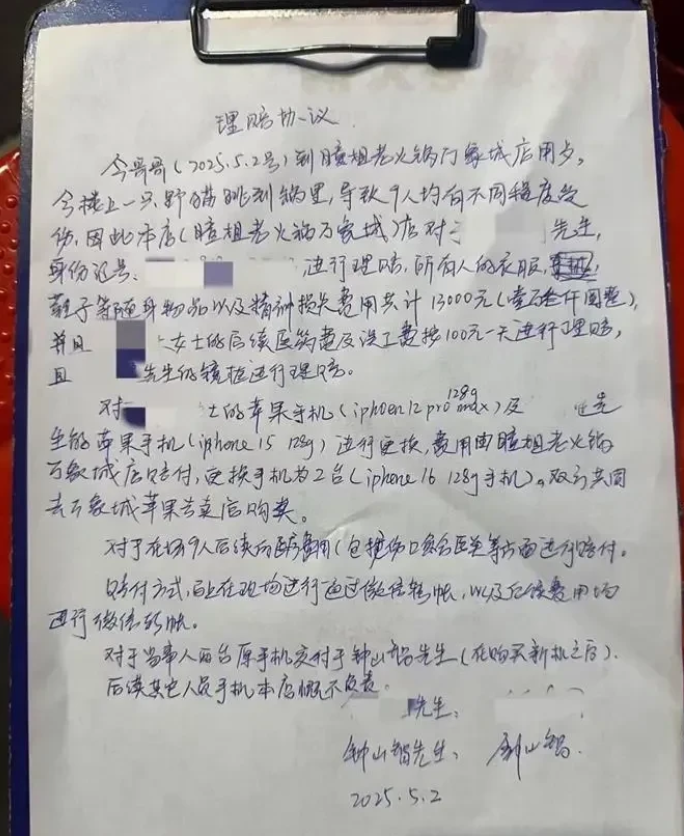 理赔协议
今哥哥(2025.5.2号)到瞳姐老火锅万象城店用夕,
今楼上一只野猫跳到锅里,导致9人均有不同程度受
伤,因此本店(瞳姐老火锅万象城)店对 先生,
身份证号: ,进行理赔,所有人的衣服,
鞋子等随身物品以及精神损失费用共计13000元(壹万叁仟圆整),
并且 女士的后续医药费及误工费按100元一天进行理赔,
且 先生的镜框进行理赔。
对 士的苹果手机(iphoen 12 pro max 128g)及 先
生的苹果手机(iphone 15 128g)进行更换,费用由瞳姐老火锅
万象城店赔付,更换手机为2台(iphone 16 128g手机)。双方共同
去万象城苹果专卖店购买。
对于在场9人后续的医药费用(包括伤口愈合医美等方面进行赔付。
赔付方式,马上在现场进行通过微信转帐,以及后续费用均
进行微信转帐。
对于当事人两台原手机交付于钟山智先生(在购买新机之后).
后续其它人员手机本店概不负责.
先生:
钟山智先生: 钟山智.
2025.5.2